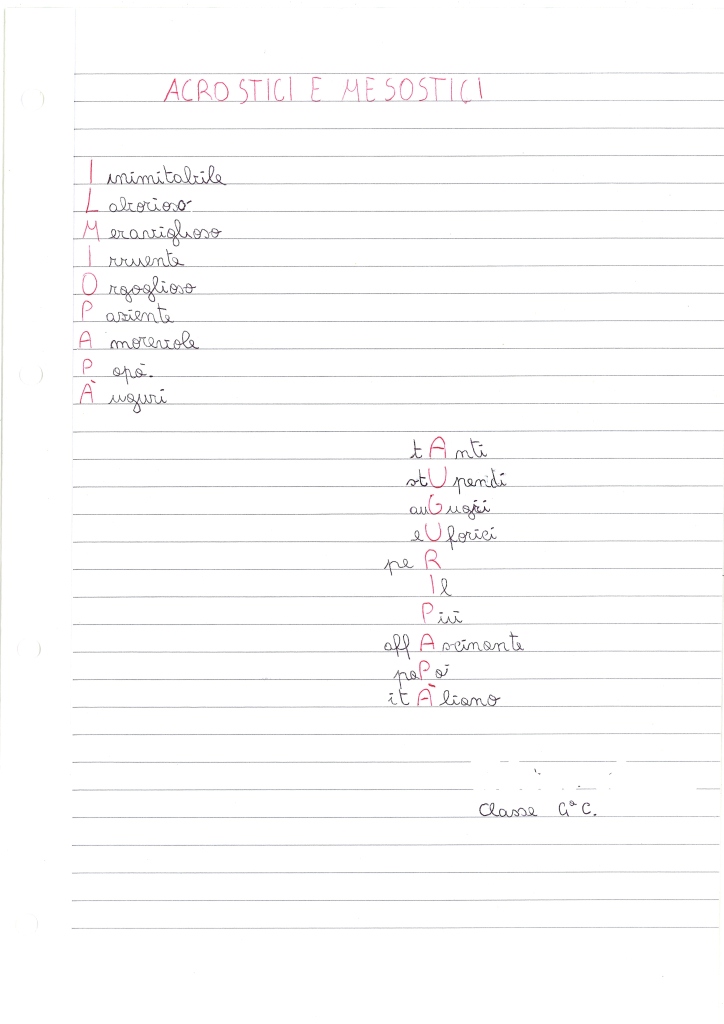 ACROSTICI E MESOSTICI
Inimitabile
Laborioso
Meraviglioso
Irruente
Orgoglioso
Paziente
Amorevole
Papà.
Àuguri
tAnti
stUpendi
auGuri
eUforici
peR
Il
Più
affAscinante
paPà
itÀliano
Classe 4ª C.